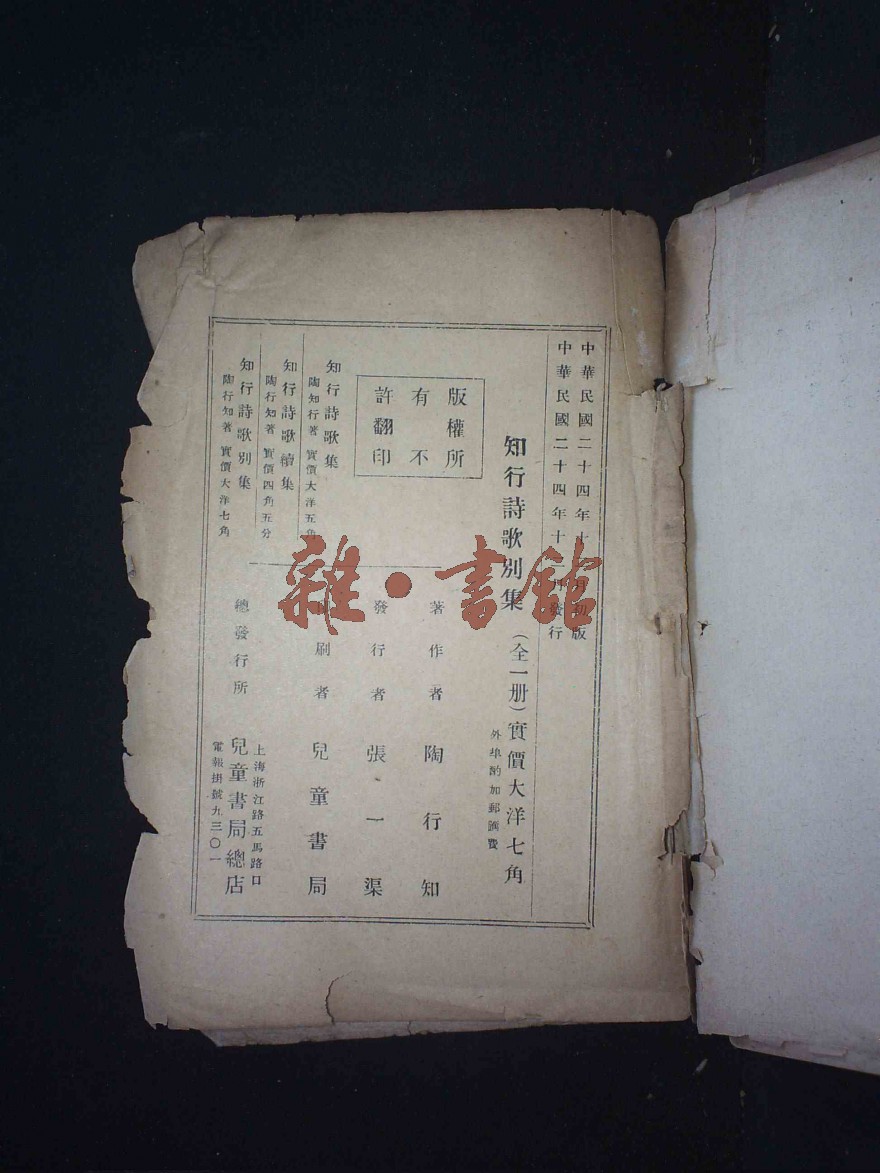 中華民國二十四年十 月初版
中華民國二十四年十 月發行
知行詩歌別集（全一册）實價大洋七角
外埠酌加郵匯費
版權所
有不
許翻印
著作者 陶行知
發行者 張一渠
印刷者 兒童書局
總發行所 兒童書局總店
上海浙江路五馬路口
電報掛號九三〇一
知行詩歌集
陶知行著 實價大洋五角
知行詩歌續集
陶行知著 實價四角五分
知行詩歌別集
陶行知著 實價大洋七角
雜·書館